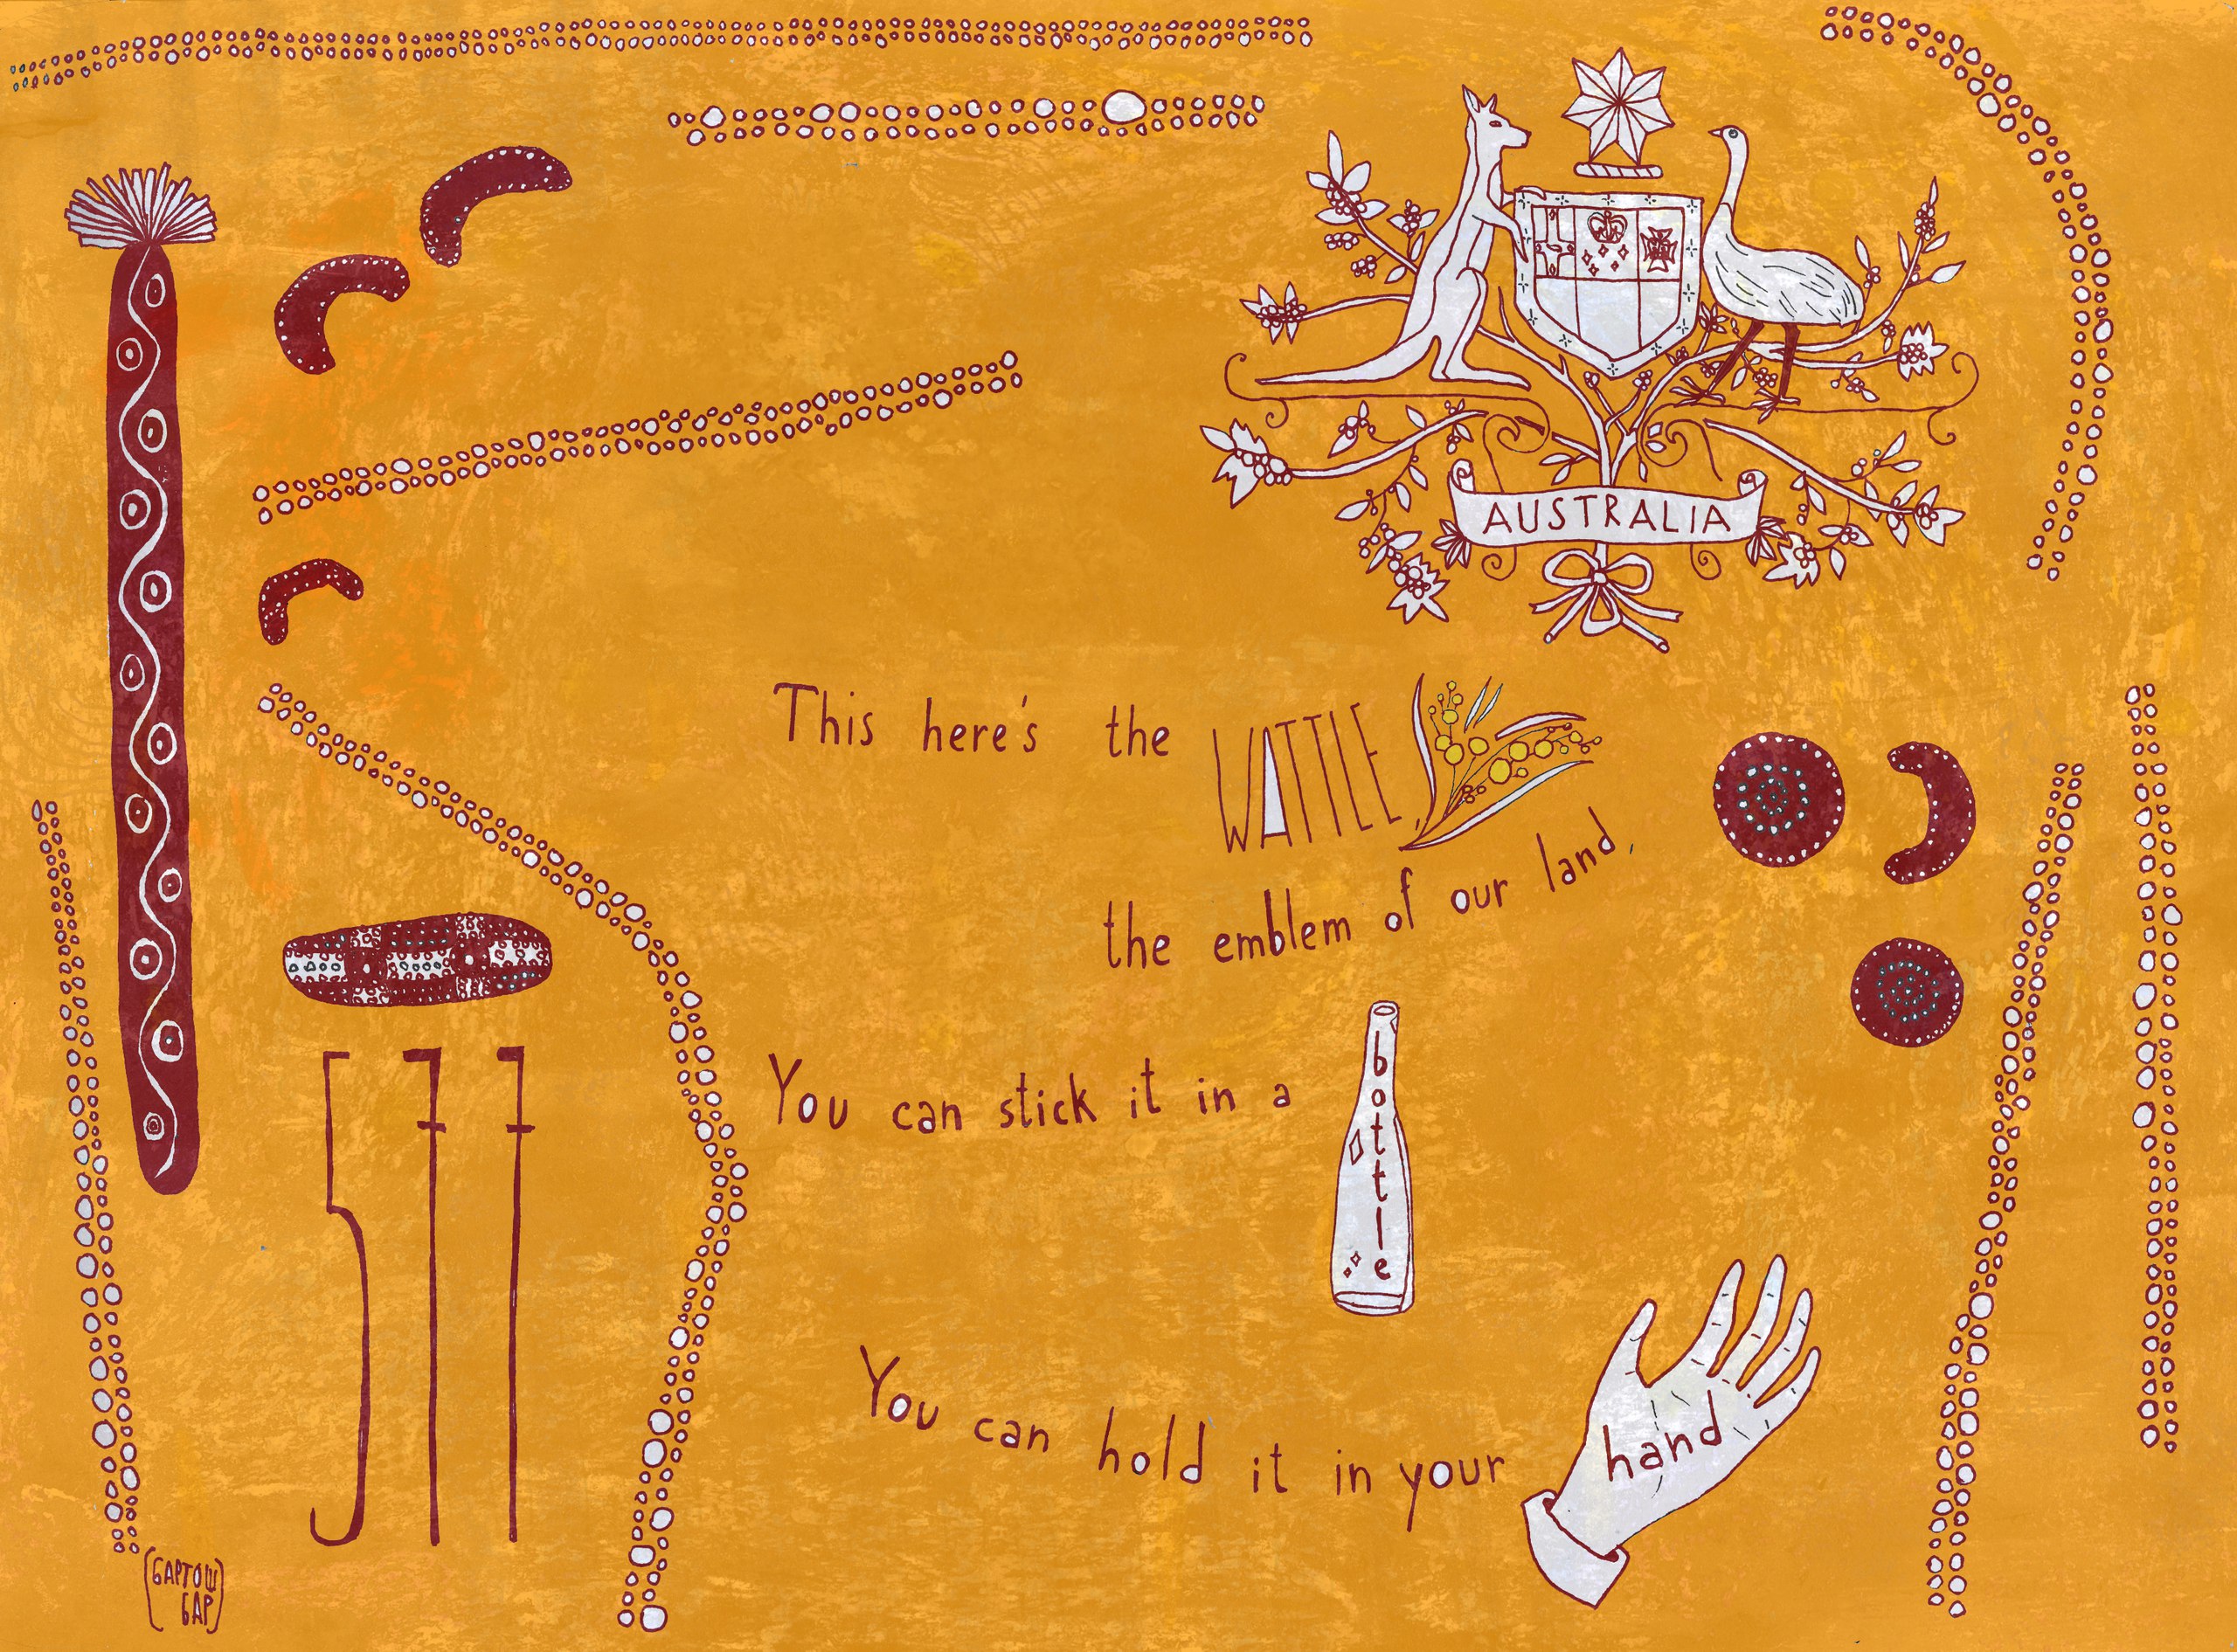 AUSTRALIA
This here's the WATTLE,
the emblem of our land.
You can stick it in a bottle
You can hold it in your hand
577
БАРТОШ
БАР